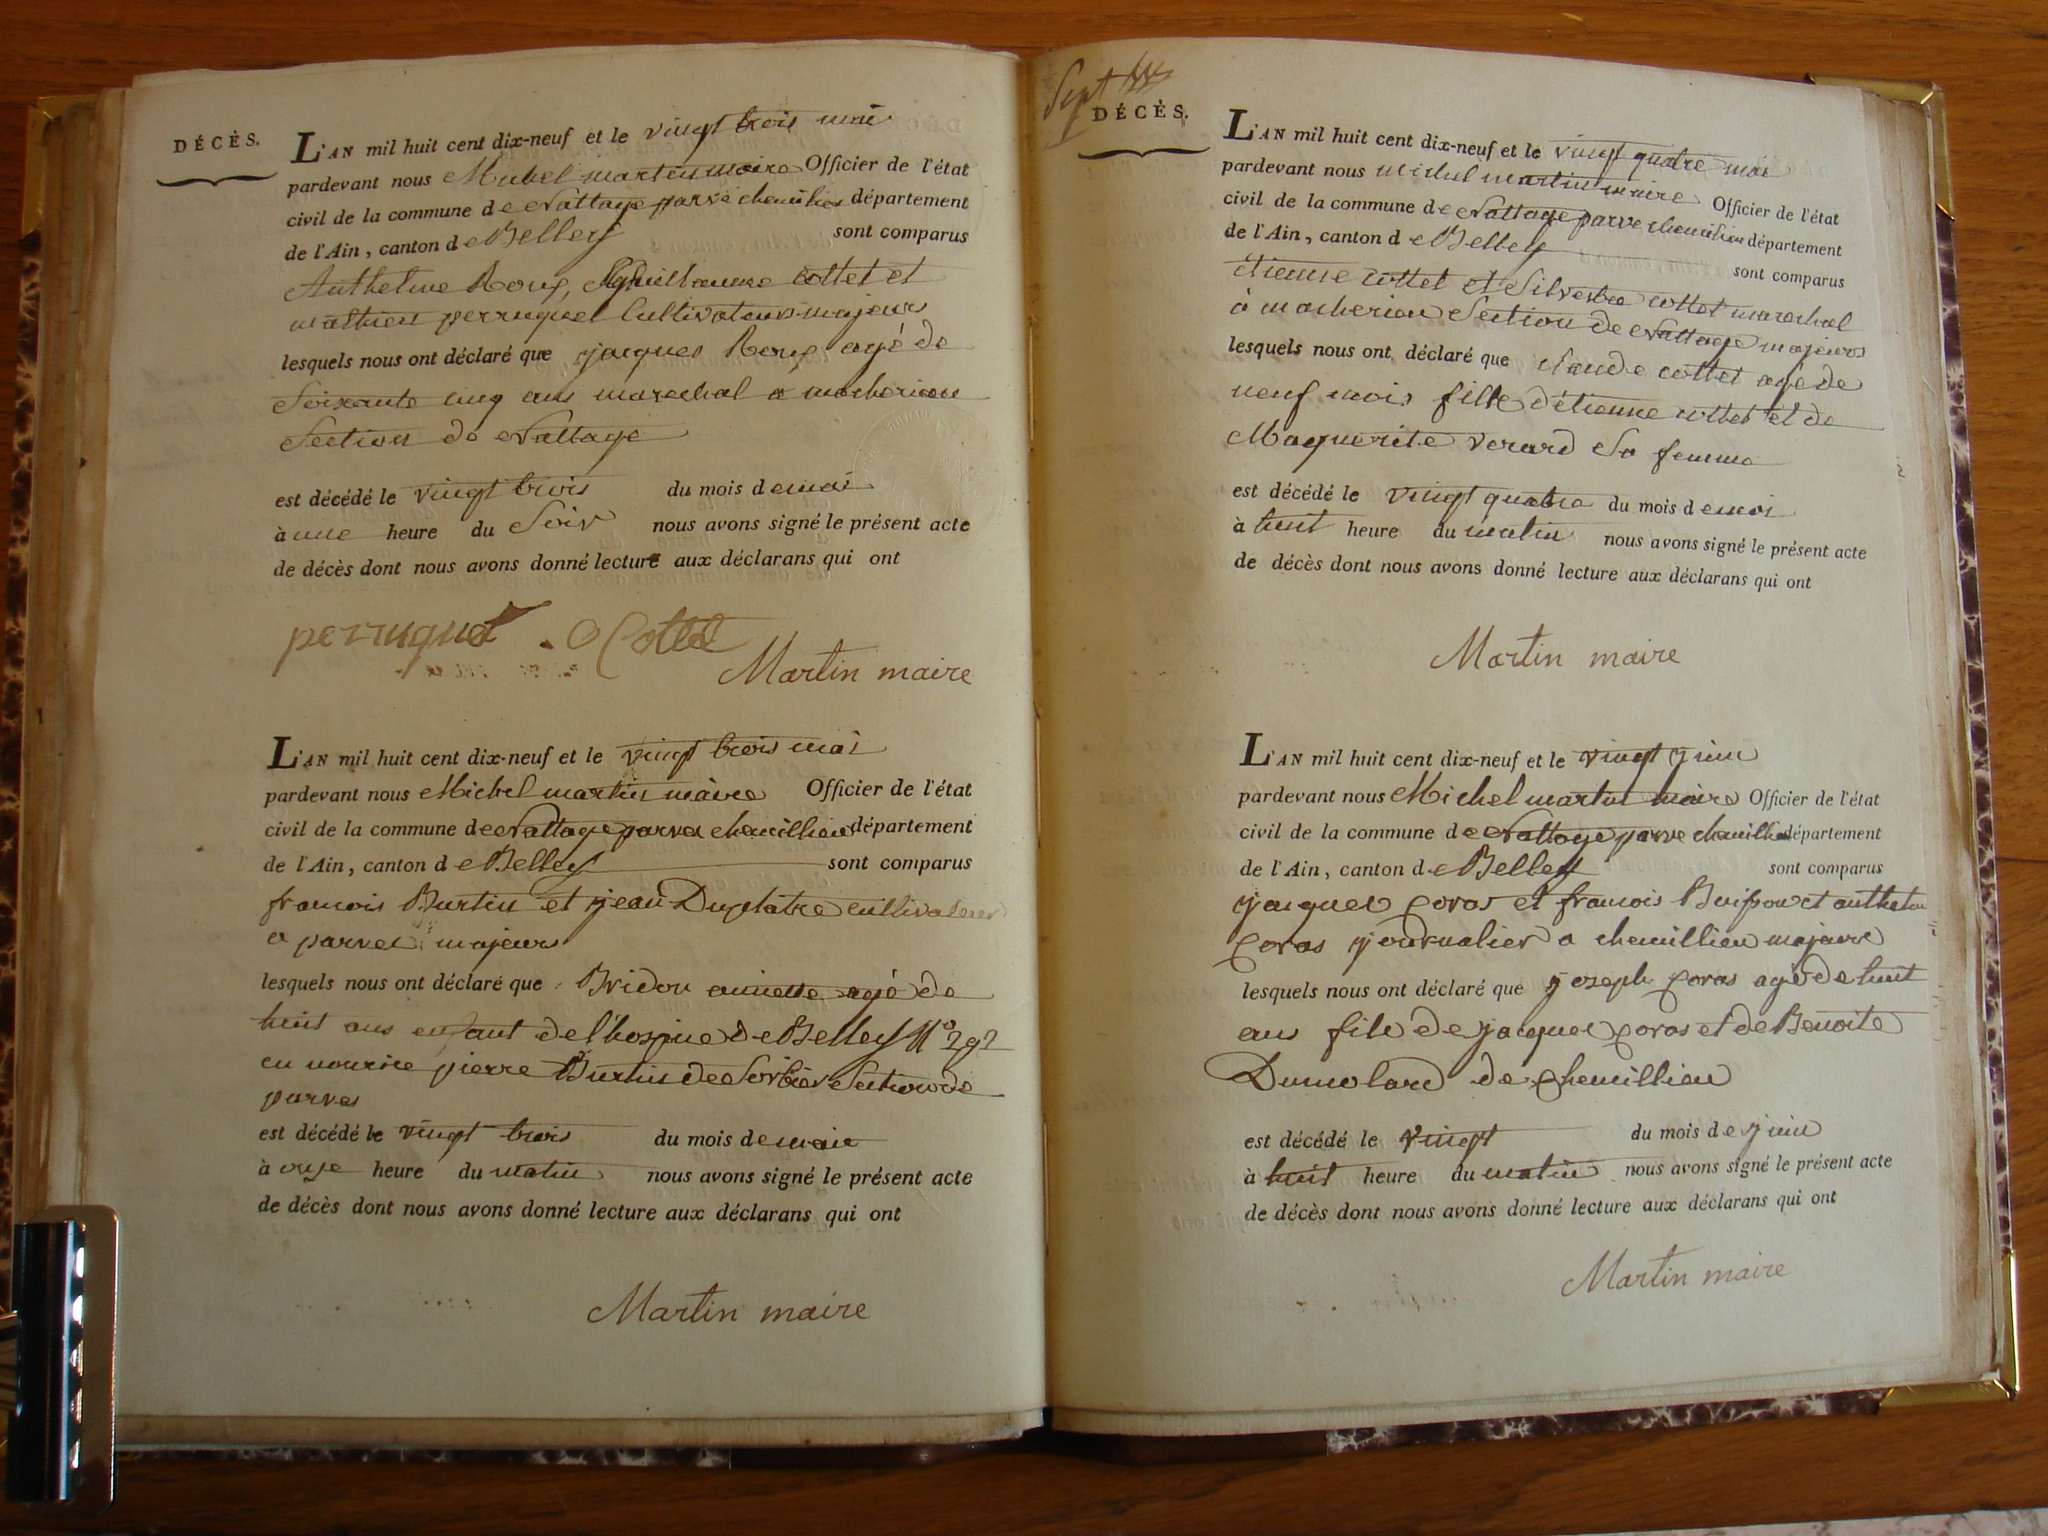 DÉCÈS.
L'AN mil huit cent dix-neuf et le vingt trois mai
pardevant nous Michel martin maire Officier de l'état
civil de la commune de Nattage parve chemilien département
de l'Ain, canton de Belley sont comparus
Anthelme Roux, guillaume cottet et
mathieu perruquet Cultivateurs majeurs
lesquels nous ont déclaré que jacques Roux agé de
Soixante cinq ans marechal a macherieu
Section de Nattage
est décédé le vingt trois du mois de mai
à une heure du Soir nous avons signé le présent acte
de décès dont nous avons donné lecture aux déclarans qui ont
perruquet Cottet
Martin maire
L'AN mil huit cent dix-neuf et le vingt trois mai
pardevant nous Michel martin maire Officier de l'état
civil de la commune de Nattage parve chemillieu département
de l'Ain, canton de Belley sont comparus
francois Burtin et jean Duplatre cultivateur
a parve majeurs
lesquels nous ont déclaré que Bridon annette agé de
huit ans enfant de l'hospice de Belley N° 292
en nourice pierre Burtin de Sorbier Section de
parves
est décédé le vingt trois du mois de mai
à onze heure du matin nous avons signé le présent acte
de décès dont nous avons donné lecture aux déclarans qui ont
Martin maire
Sept
DÉCÈS.
L'AN mil huit cent dix-neuf et le vingt quatre mai
pardevant nous michel martin maire Officier de l'état
civil de la commune de Nattage parve chemilieu département
de l'Ain, canton de Belley sont comparus
étienne cottet et Silvestre cottet marechal
à macherieu Section de Nattage majeurs
lesquels nous ont déclaré que claude cottet agé de
neuf mois fille d'étienne cottet et de
Maguerite verard Sa femme
est décédé le vingt quatre du mois de mai
à huit heure du matin nous avons signé le présent acte
de décès dont nous avons donné lecture aux déclarans qui ont
Martin maire
L'AN mil huit cent dix-neuf et le vingt juin
pardevant nous Michel martin maire Officier de l'état
civil de la commune de Nattage parve chemillieu département
de l'Ain, canton de Belley sont comparus
jacques coras et francois Buisson et anthelme
coras journalier a chemillieu majeurs
lesquels nous ont déclaré que joseph coras agé de huit
ans fils de jacques coras et de Benoite
Dumolard de chemillieu
est décédé le vingt du mois de juin
à huit heure du matin nous avons signé le présent acte
de décès dont nous avons donné lecture aux déclarans qui ont
Martin maire